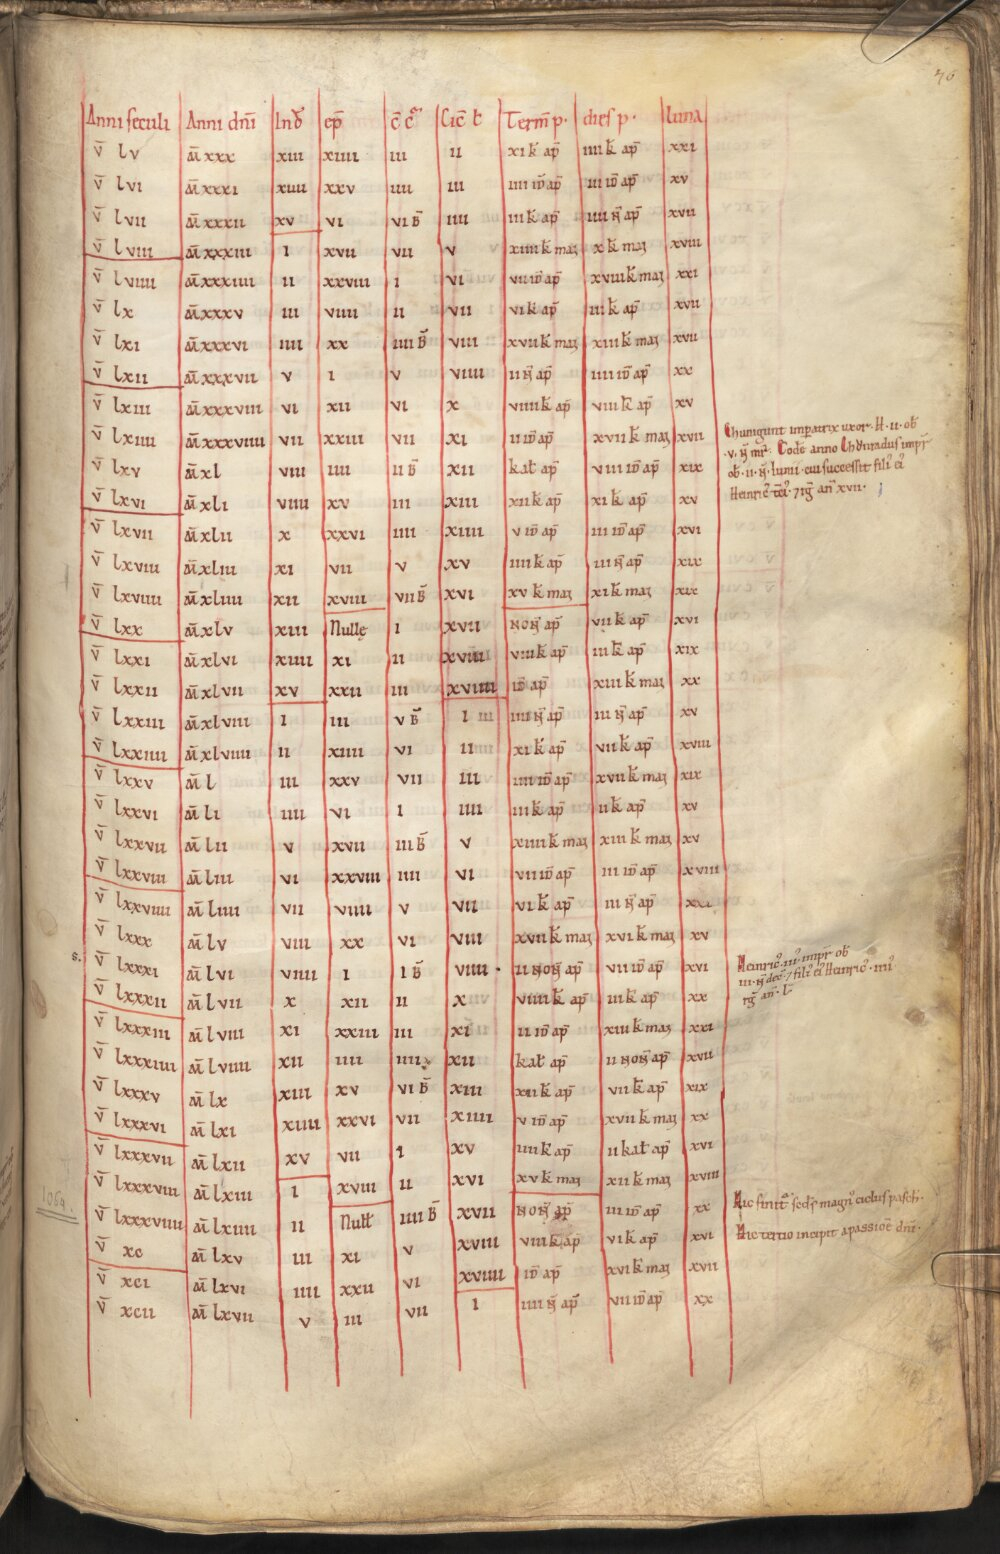 76
Anni seculi Anni dn̄i Ind̄ ep̄ c̄ c̄ Cic̄ ł Term̄ p· dies p· luna
v̄ lv m̄xxx xiii xiiii iii ii xi k̄ ap̄ iiii k̄ ap̄ xxi
v̄ lvi m̄xxxi xiiii xxv iiii iii iiii id̄ ap̄ iii id̄ ap̄ xv
v̄ lvii m̄xxxii xv vi vi b̄ iiii iii k̄ ap̄ iiii n̄ ap̄ xvii
v̄ lviii m̄xxxiii i xvii vii v xiiii k̄ maz x k̄ maz xviii
v̄ lviiii m̄xxxiiii ii xxviii i vi vii id̄ ap̄ xviii k̄ maz xxi
v̄ lx m̄xxxv iii viiii ii vii vi k̄ ap̄ iii k̄ ap̄ xvii
v̄ lxi m̄xxxvi iiii xx iiii b̄ viii xvii k̄ maz xiii k̄ maz xvii
v̄ lxii m̄xxxvii v i v viiii ii n̄ ap̄ iiii id̄ ap̄ xx
v̄ lxiii m̄xxxviii vi xii vi x viiii k̄ ap̄ viii k̄ ap̄ xv
v̄ lxiiii m̄xxxviiii vii xxiii vii xi ii id̄ ap̄ xvii k̄ maz xvii
Chunigunt imperatrix uxor· H· ii· ob̄
·v· n̄ mr̄· Eode anno Chŏnradus imp̄r
ob̄· ii· n̄· iunii· cui successit fili᾽ ei᾽
Heinric᾽ · 7 rḡ an̄ xvii·
v̄ lxv m̄xl viii iiii ii b̄ xii kał ap̄ viii id̄ ap̄ xix
v̄ lxvi m̄xli viiii xv iii xiii xii k̄ ap̄ xi k̄ ap̄ xv
v̄ lxvii m̄xlii x xxvi iiii xiiii v id̄ ap̄ iii id̄ ap̄ xvi
v̄ lxviii m̄xliii xi vii v xv iiii k̄ ap̄ iii n̄ ap̄ xix
v̄ lxviiii m̄xliiii xii xviii vii b̄ xvi xv k̄ maz xi k̄ maz xix
v̄ lxx m̄xlv xiii Nullę i xvii non̄ ap̄ vii k̄ ap̄ xvi
v̄ lxxi m̄xlvi xiiii xi ii xviii viii k̄ ap̄ iii k̄ ap̄ xix
v̄ lxxii m̄xlvii xv xxii iii xviiii id̄ ap̄ xiii k̄ maz xx
v̄ lxxiii m̄xlviii i iii v b̄ i iiii n̄ ap̄ iii n̄ ap̄ xv
v̄ lxxiiii m̄xlviiii ii xiiii vi ii xi k̄ ap̄ vii k̄ ap̄ xviii
v̄ lxxv m̄ l iii xxv vii iii iiii id̄ ap̄ xvii k̄ maz xix
v̄ lxxvi m̄ li iiii vi i iiii iii k̄ ap̄ ii k̄ ap̄ xv
v̄ lxxvii m̄ lii v xvii iii b̄ v xiiii k̄ maz xiii k̄ maz xv
v̄ lxxviii m̄ liii vi xxviii iiii vi vii id̄ ap̄ iii id̄ ap̄ xviii
v̄ lxxviiii m̄ liiii vii viiii v vii vi k̄ ap̄ iii n̄ ap̄ xxi
v̄ lxxx m̄ lv viii xx vi viii xvii k̄ maz xvi k̄ maz xv
s. v̄ lxxxi m̄ lvi viiii i i b̄ viiii · ii non̄ ap̄ vii id̄ ap̄ xvi
Heinric᾽· iii᾽· imp̄r ob̄
iii· n̄ dec̄· 7 fili᾽ ei᾽ Heinric᾽· iiii᾽
rḡ an̄· l·
v̄ lxxxii m̄ lvii x xii ii x viiii k̄ ap̄ iii k̄ ap̄ xx
v̄ lxxxiii m̄ lviii xi xxiii iii xi ii id̄ ap̄ xiii k̄ maz xxi
v̄ lxxxiiii m̄ lviiii xii iiii iiii xii kał ap̄ ii non̄ ap̄ xvii
v̄ lxxxv m̄ lx xiii xv vi b̄ xiii xii k̄ ap̄ vii k̄ ap̄ xix
v̄ lxxxvi m̄ lxi xiiii xxvi vii xiiii v id̄ ap̄ xvii k̄ maz xx
v̄ lxxxvii m̄ lxii xv vii i xv iiii k̄ ap̄ ii kał ap̄ xvi
v̄ lxxxviii m̄ lxiii i xviii ii xvi xv k̄ maz xii k̄ maz xviii
1064. v̄ lxxxviiii m̄ lxiiii ii Nułł iiii b̄ xvii non̄ ap̄ iii id̄ ap̄ xx
Hic finit᾽ sc̄ds magn᾽ ciclus pasch·
v̄ xc m̄ lxv iii xi v xviii viii k̄ ap̄ vi k̄ ap̄ xvi
Hic tertio incipit a passiōe dn̄i·
v̄ xci m̄ lxvi iiii xxii vi xviiii id̄ ap̄ xvi k̄ maz xvii
v̄ xcii m̄ lxvii v iii vii i iiii n̄ ap̄ vii id̄ ap̄ xx